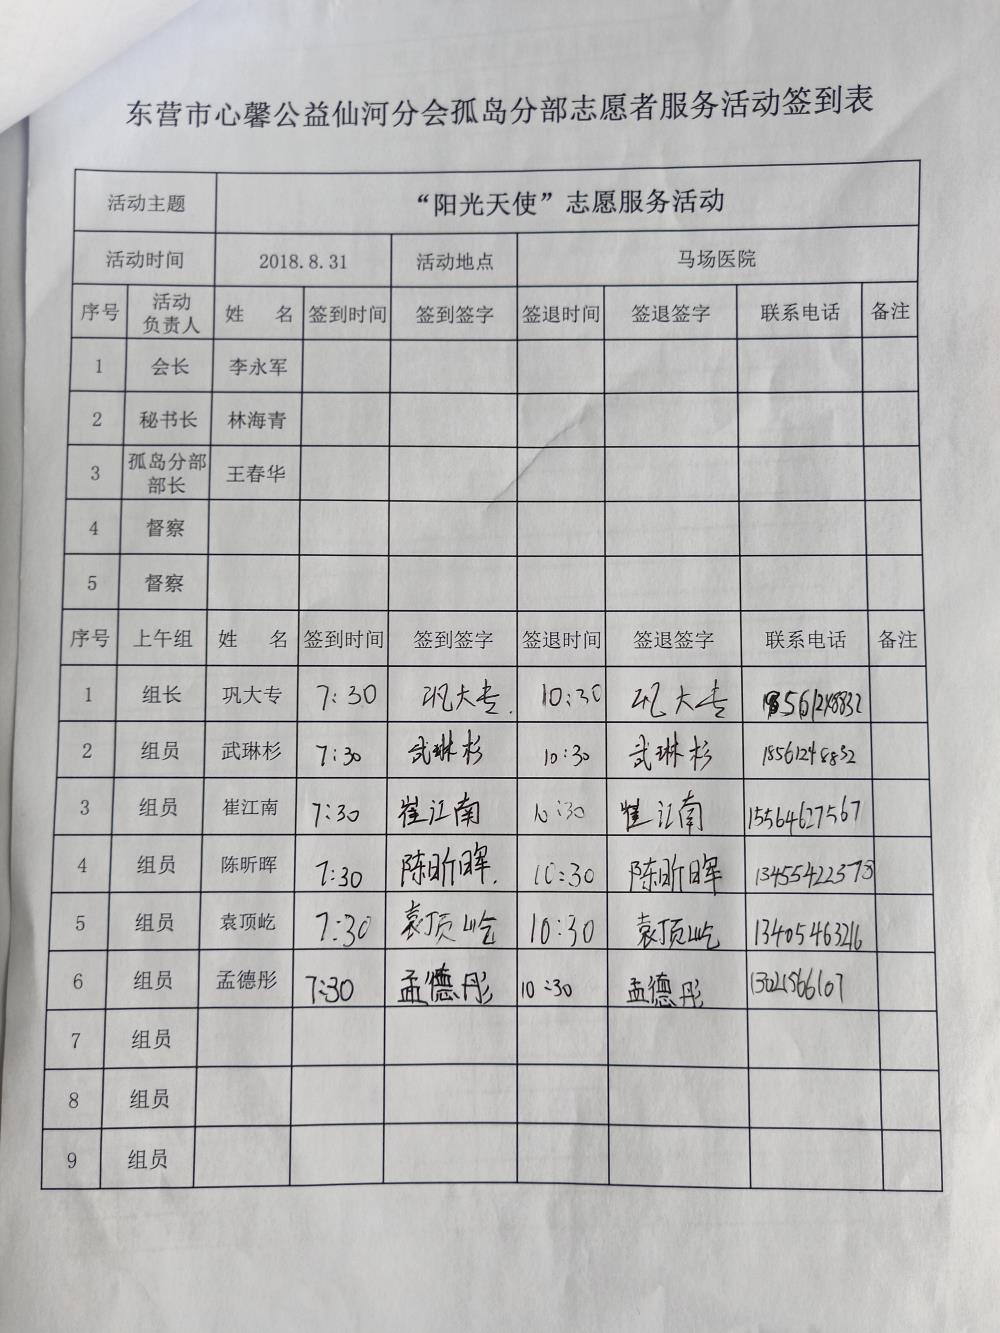 东营市心馨公益仙河分会孤岛分部志愿者服务活动签到表
活动主题 “阳光天使”志愿服务活动
活动时间 2018.8.31 活动地点 马场医院
序号 活动负责人 姓 名 签到时间 签到签字 签退时间 签退签字 联系电话 备注
1 会长 李永军
2 秘书长 林海青
3 孤岛分部部长 王春华
4 督察
5 督察
序号 上午组 姓 名 签到时间 签到签字 签退时间 签退签字 联系电话 备注
1 组长 巩大专 7:30 巩大专. 10:30 巩大专
2 组员 武琳杉 7:30 武琳杉 10:30 武琳杉 18561248832
3 组员 崔江南 7:30 崔江南 10:30 崔江南 15564627567
4 组员 陈昕晖 7:30 陈昕晖. 10:30 陈昕晖
5 组员 袁顶屹 7:30 袁顶屹 10:30 袁顶屹 13405463216
6 组员 孟德彤 7:30 孟德彤 10:30 孟德彤
7 组员
8 组员
9 组员